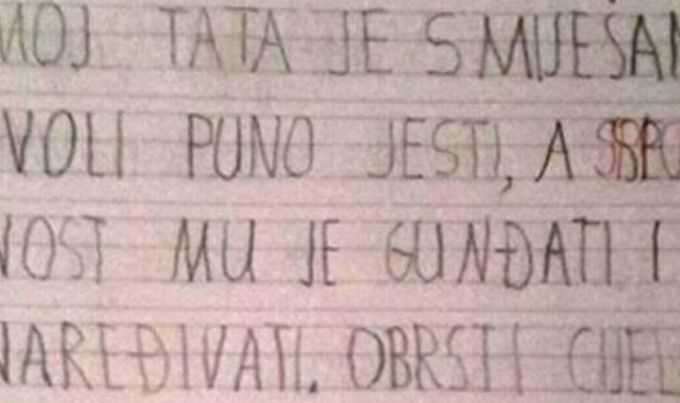 MOJ TATA JE SMIJEŠAN
VOLI PUNO JESTI, A
NOST MU JE GUNĐATI I
NAREĐIVATI. OBRSTI CIJEL